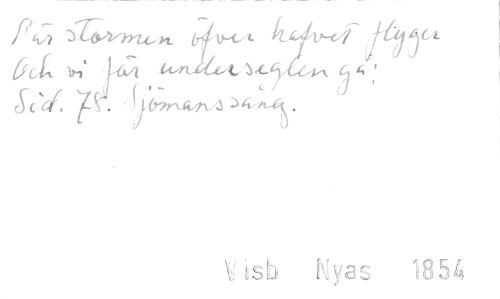 När stormen öfver hafvet flyger
Och vi för underseglen gå;
Sid. 78. Sjömanssång.
Visb Nyas 1854